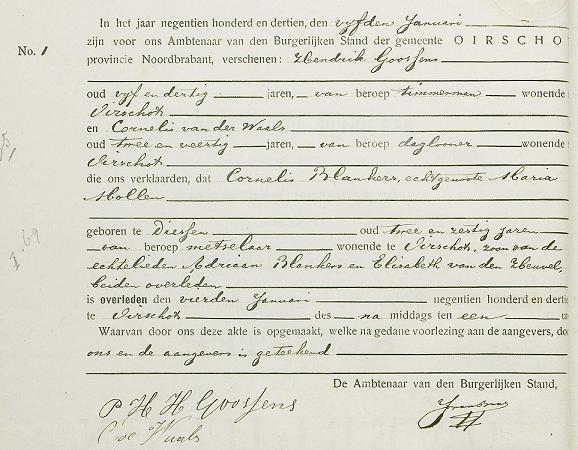 In het jaar negentien honderd en dertien, den vyfden Januari
No. 1 zijn voor ons Ambtenaar van den Burgerlijken Stand der gemeente OIRSCHO
provincie Noordbrabant, verschenen: Hendrik Goossens
oud vyf en dertig jaren, van beroep timmerman wonende
Oirschot
en Cornelis van der Waals
oud twee en veertig jaren, van beroep daglooner wonende
Oirschot
die ons verklaarden, dat Cornelis Blankers, echtgenoote Maria
Mollen
geboren te Diessen oud twee en zestig jaren
van beroep metselaar wonende te Oirschot, zoon van de
echtelieden Adriaan Blankers en Elisabeth van den Heuvel,
beiden overleden
is overleden den vierden Januari negentien honderd en dertie
te Oirschot des na middags ten een uu
Waarvan door ons deze akte is opgemaakt, welke na gedane voorlezing aan de aangevers, doo
ons en de aangevers is geteekend
De Ambtenaar van den Burgerlijken Stand,
P H H Goossens
C vd Waals
I 69